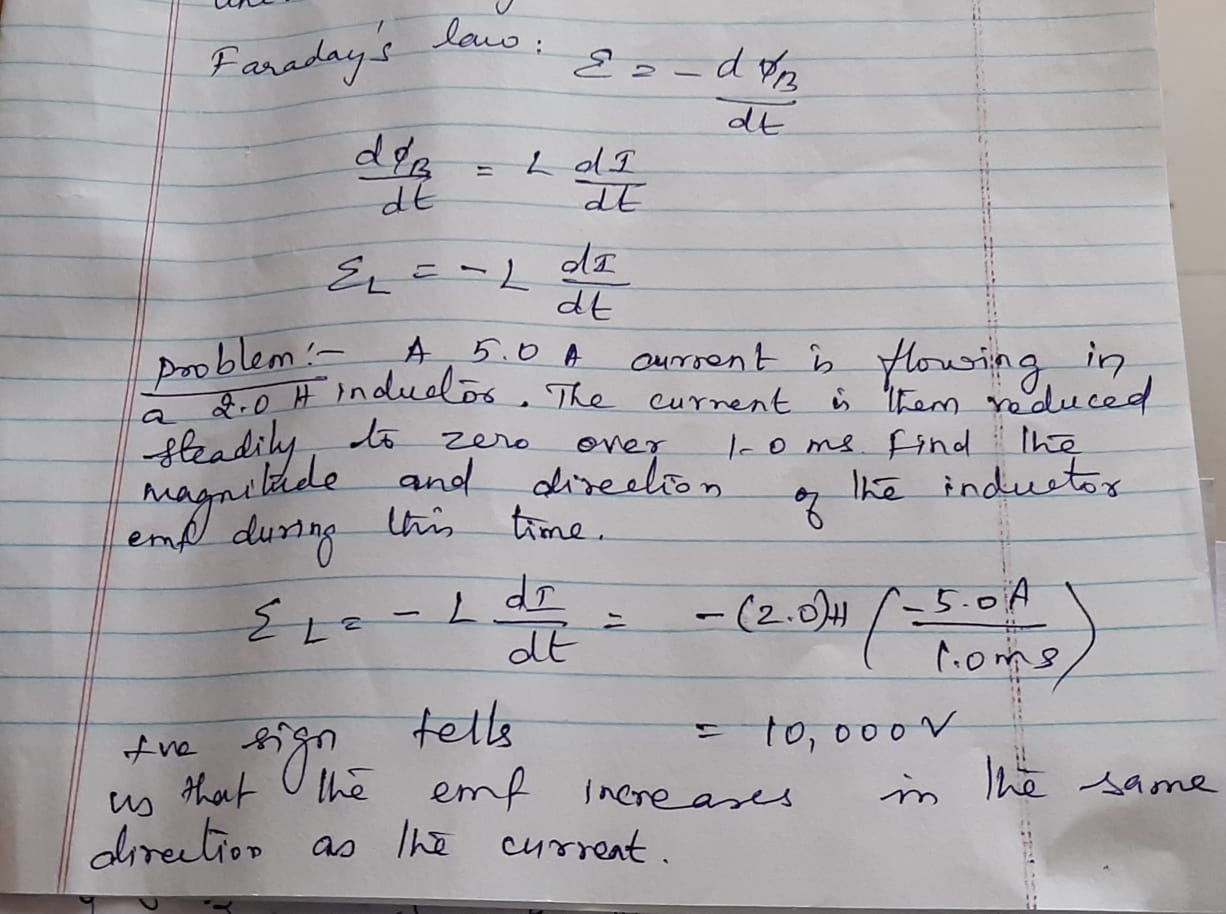 Faraday's law: Ɛ = - dφB/dt
dφB/dt = L dI/dt
ƐL = - L dI/dt
Problem:- A 5.0 A current is flowing in
a 2.0 H inductor. The current is them reduced
steadily to zero over 1.0 ms. Find the
magnitude and direction of the inductor
emf during this time.
ƐL = - L dI/dt = -(2.0)H (-5.0A/1.0ms)
+ve sign tells = 10,000V
us that the emf increases in the same
direction as the current.